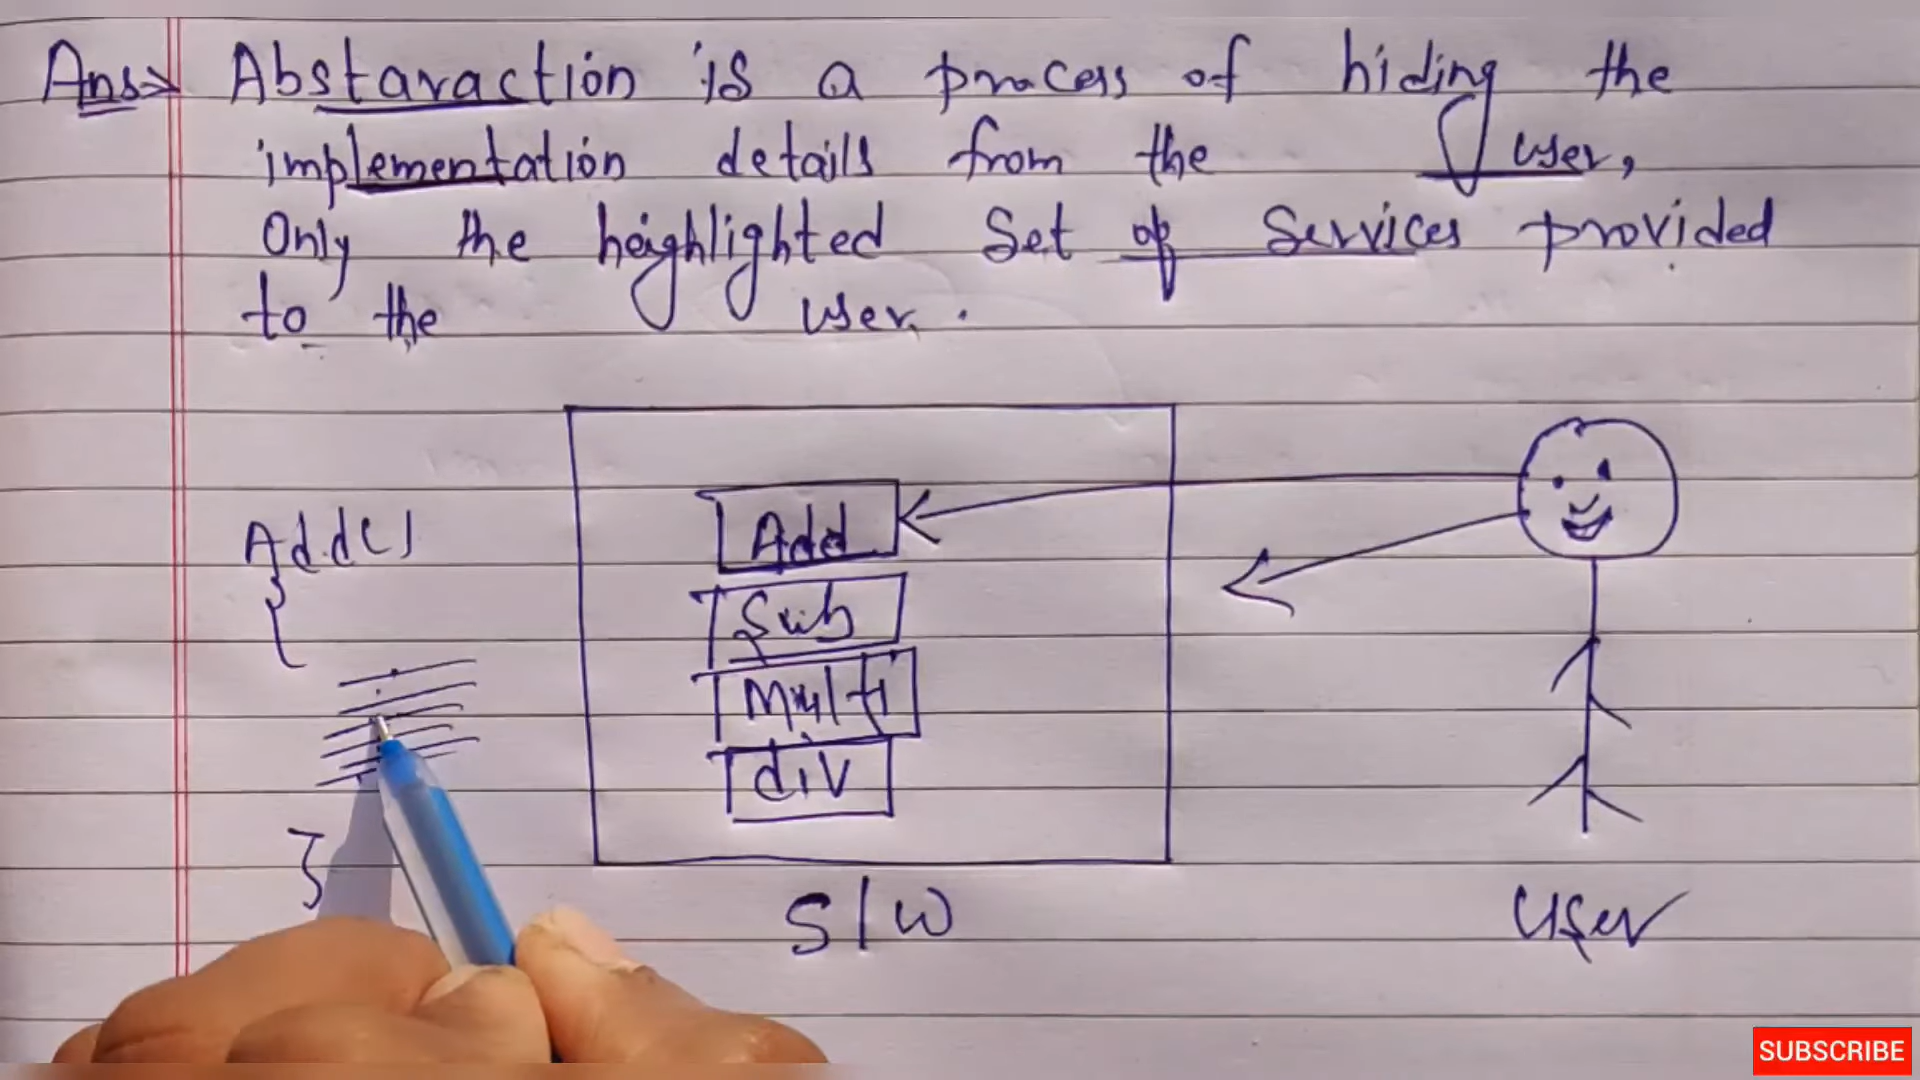 Ans> Abstaraction is a process of hiding the
implementation details from the user,
Only the heighlighted Set of Services provided
to the user.
Add()
{
}
Add
Sub
Multi
div
S/W
User
SUBSCRIBE